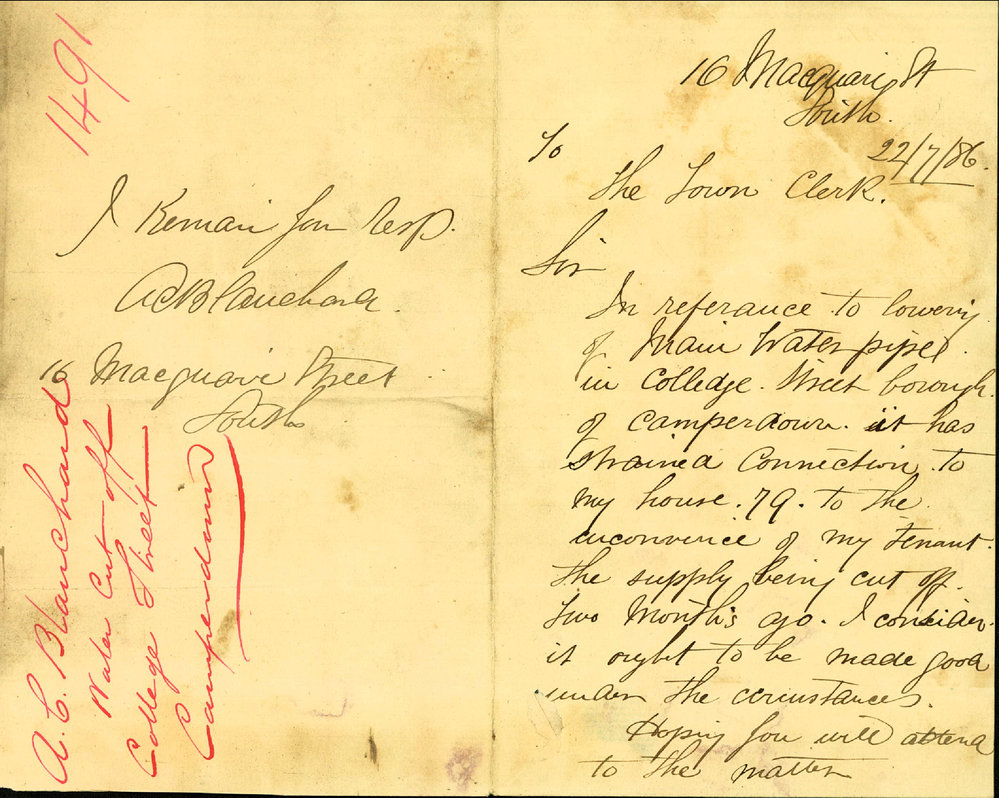 16 Macquarie St
South.
22/7/86.
To
The Town Clerk.
Sir
In referance to lowering
of Main Water pipes
in College. Street borough
of Camperdown. it has
strained Connection. to
my house. 79. to the
inconvence of my tenant.
the supply being cut off.
Two Month's ago. I consider
it ought to be made good
under the circustances.
Hoping you will attend
to the matter
I Remain your resp.
A C Blanchard.
16 Macquarie Street
South
1491
A. C. Blanchard
Water Cut off
College Street
Camperdown